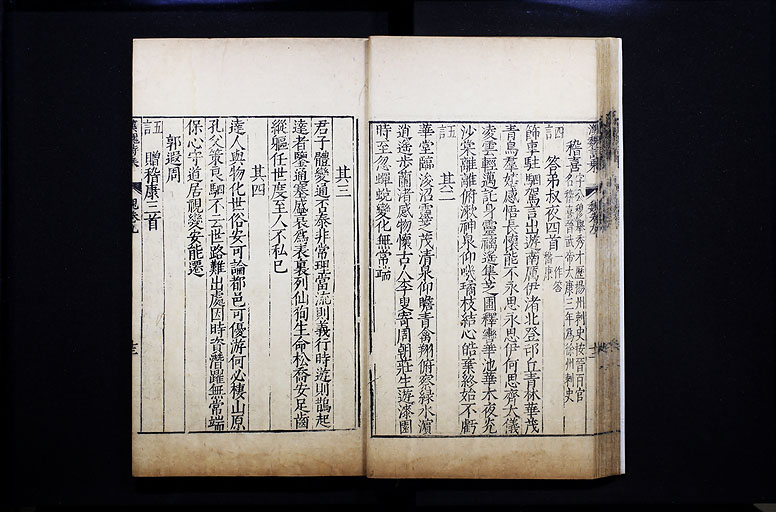 嵇喜字公穆舉秀才歷揚州刺史按晉百官
名嵇喜晉武帝太康三年為徐州刺史
答弟叔夜四首一作答嵇康
四言
飾車駐駟駕言出遊南厲伊渚北登邙丘青林華茂
青鳥羣嬉感悟長懷能不永思永思伊何思齊大儀
凌雲輕邁託身靈螭遙集芝圃釋轡華池華木夜光
沙棠離離俯漱神泉仰嘰瓊枝結心皓素終始不虧
其二
五言
華堂臨浚沼靈芝茂清泉仰瞻青禽翔俯察綠水濱
逍遙步蘭渚感物懷古人李叟寄周朝莊生遊漆園
時至忽蟬蛻變化無常端
其三
君子體變通否泰非常理當流則義行時逝則鵲起
達者鑒通塞盛衰為表裏列仙狥生命松喬安足齒
縱軀任世度至人不私已
其四
達人與物化世俗安可論都邑可優游何必棲山原
孔父策良駟不云世路難出處因時資潛躍無常端
保心守道居視變安能遷
郭遐周
贈嵇康三首
五言